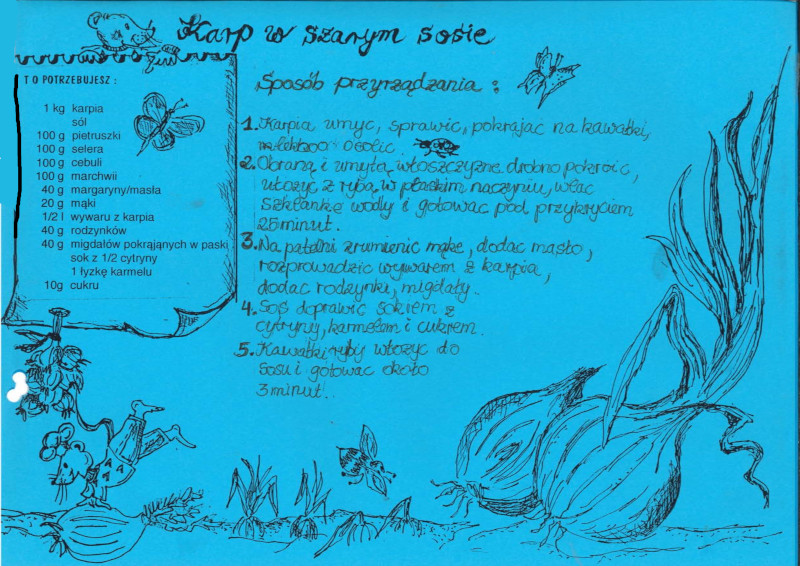 Karp w szarym sosie
TO POTRZEBUJESZ:
1 kg karpia
sól
100 g pietruszki
100 g selera
100 g cebuli
100 g marchwii
40 g margaryny/masła
20 g mąki
1/2 l wywaru z karpia
40 g rodzynków
40 g migdałów pokrająnych w paski
sok z 1/2 cytryny
1 łyżkę karmelu
10g cukru
Sposób przyrządzania :
1. Karpia umyć, sprawić, pokrajać na kawałki,
osolic.
2. Obraną i umytą włoszczyznę drobno pokroić,
ułożyć z rybą w płaskim naczyniu, wlać
szklankę wody i gotować pod przykryciem
25 minut.
3. Na patelni zrumienić mąkę, dodać masło,
rozprowadzić wywarem z karpia,
dodać rodzynki, migdały.
4. Sos doprawić sokiem z
cytryny, karmelem i cukrem.
5. Kawałki ryby włożyć do
sosu i gotować około
3 minut.